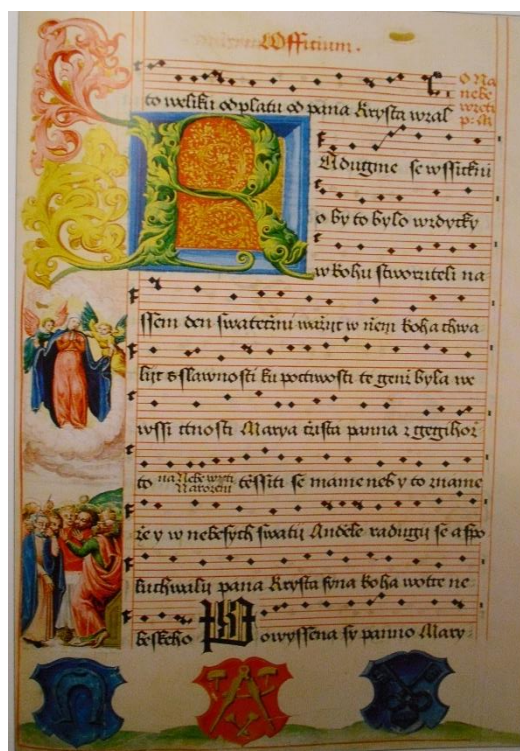 Officium.
to weliku odplatu od pana Krysta wzal
O Na
nebe
wzeti
p: M
RAdugme se wssickni
o by to bylo wzdycky
w bohu stworziteli na
ssem den swateczni warzijc w niem boha chwa
lijc s slawnosti ku poctiwosti te geni byla we
wssi ctnosti Marya czista panna z gegihoz
to na Nebe wzyti tiessiti se mame neb y to zname
Narozeni
ze y w nebesych swatij Andiele radugij se a spo
luchwalij pana Krysta syna boha wotce ne
beskeho Powyssena sy panno Mary